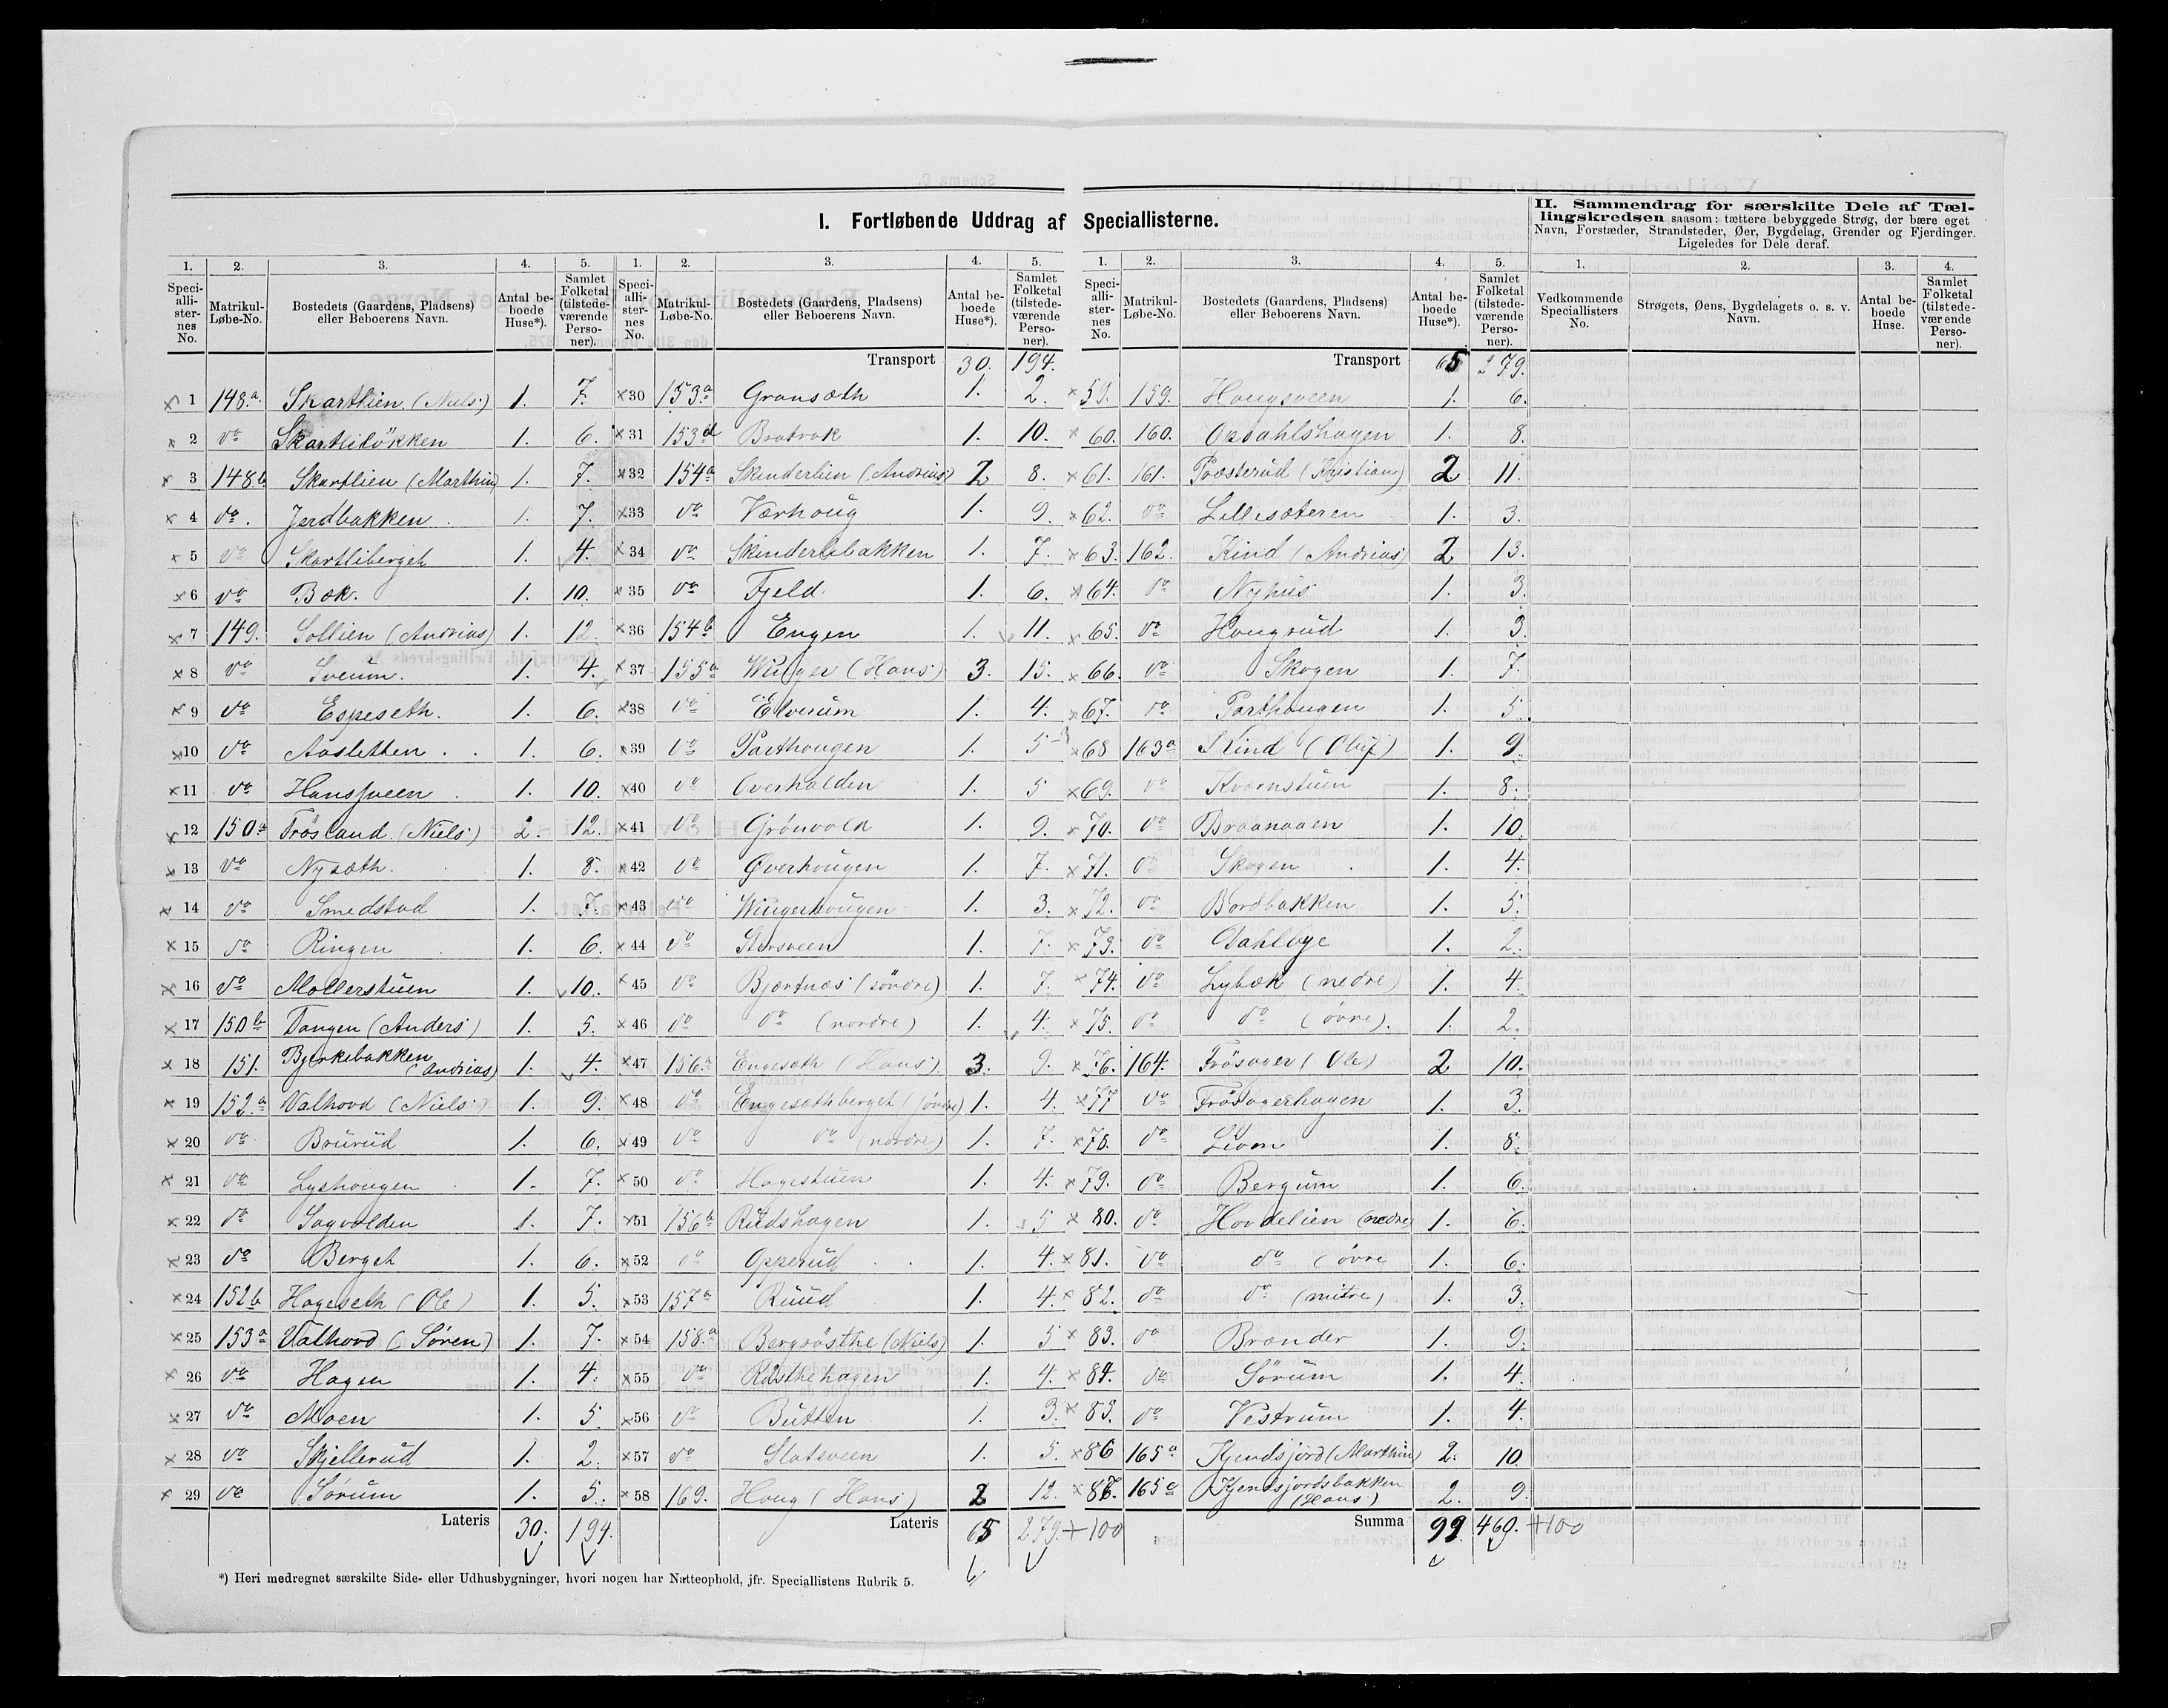 I. Fortløbende Uddrag af Speciallisterne.
II. Sammendrag for særskilte Dele af Tællingskredsen saasom: tættere bebyggede Strøg, der bære eget
Navn, Forstæder, Strandsteder, Øer, Bygdelag, Grender og Fjerdinger.
Ligeledes for Dele deraf.
1. 2. 3. 4. 5.
Speciallisternes No. Matrikul-Løbe-No. Bostedets (Gaardens, Pladsens) eller Beboerens Navn. Antal beboede Huse*). Samlet Folketal (tilstedeværende Personer).
1 148.a Skartlien (Niels) 1. 7.
2 do Skartlilökken 1. 6.
3 148b Skartlien (Marthin) 1. 7.
4 do. Jerdbakken 1. 7.
5 do Skartliberget 1. 4.
6 do Bæk. 1. 10.
7 149. Sollien (Andrias) 1. 12.
8 do Sveum. 1. 4.
9 do Espeseth. 1. 6.
10 do Aasletten 1. 6.
11 do Hanssveen 1. 10.
12 150.a Fröisland (Niels) 2. 12.
13 do Nysæth. 1. 8.
14 do Smedstad 1. 7.
15 do Ringen 1. 6.
16 do Möllerstuen 1. 10.
17 150b Dangen (Anders) 1. 5.
18 151. Bjerkebakken (Andrias) 1. 4.
19 152.a Valhovd (Niels) 1. 9.
20 do Brurud 1. 6.
21 do Lyshougen 1. 7.
22 do Sagvolden 1. 7.
23 do Berget 1. 6.
24 152b Hageseth (Ole) 1. 5.
25 153a Valhovd (Sören) 1. 7.
26 do Hagen 1. 4.
27 do Moen 1. 5.
28 do Skjellerud 1. 2.
29 do Sörum 1. 5.
Lateris 30. 194.
1. 2. 3. 4. 5.
Speciallisternes No. Matrikul-Løbe-No. Bostedets (Gaardens, Pladsens) eller Beboerens Navn. Antal beboede Huse*). Samlet Folketal (tilstedeværende Personer).
Transport 30. 194.
30 153a Gransæth 1. 2.
31 153d Bratrak 1. 10.
32 154a Skinderlien (Andrias) 2 8.
33 do Værhoug 1. 9.
34 do Skinderlibakken 1. 7.
35 do Fjeld. 1. 6.
36 154b Engen 1. 11.
37 155a Winger (Hans) 3. 15.
38 do Elverum 1. 4.
39 do Parthougen 1. 5
40 do Overhalden 1. 5
41 do Grönvold 1. 9.
42 do Overhougen 1. 7.
43 do Wingerhougen 1. 3.
44 do Storsveen 1. 7.
45 do Bjørtnæs (söndre) 1. 7.
46 do do (nordre) 1. 4.
47 156.a Engesæth (Hans) 3. 9.
48 do Engesæthberget (söndre) 1. 4.
49 do do (nordre) 1. 7.
50 do Hagestuen 1. 4.
51 156b Rudshagen 1. 5
52 do Opperud 1. 4.
53 157a Ruud 1. 4.
54 158.a Bergrösthe (Niels) 1. 5
55 do Rösthehagen 1. 4.
56 do Butten 1. 3.
57 do Slatsveen 1. 5.
58 169. Houg (Hans) 2 12.
Lateris 65 279. +100
1. 2. 3. 4. 5.
Speciallisternes No. Matrikul-Løbe-No. Bostedets (Gaardens, Pladsens) eller Beboerens Navn. Antal beboede Huse*). Samlet Folketal (tilstedeværende Personer).
Transport 65 279.
59. 159. Hougsveen 1. 6.
60. 160. Opsahlshagen 1. 8.
61. 161. Præsterud (Kristian) 2 11.
62. do Lillesæteren 1. 3.
63. 162. Kind (Andrias) 2 13.
64. do Nyhus 1. 3.
65. do Hougrud 1. 3.
66. do Skogen 1. 7.
67. do Parthougen 1. 5.
68 163a Kind (Oluf) 1. 9.
69. do Kværnstuen 1. 8.
70. do Braanaaen 1. 10.
71. do Skogen 1. 4.
72. do Bordbakken 1. 5.
73. do Dahlbye 1. 2.
74. do Lybæk (nedre) 1. 4.
75. do do (övre). 1. 2.
76. 164. Frösager (Ole) 2 10.
77 do Frösagerhagen 1. 3.
78. do Lium 1. 8.
79. do Bergum 1. 6.
80. do Hovdelien (nedre) 1. 6.
81. do do (övre 1. 6.
82. do do (mitre) 1. 3.
83. do Brænder 1. 9.
84. do Sörum 1. 4.
85. do Vestrum 1. 4.
86 165a Kjendsjord (Marthin) 2. 10.
87. 165c Kjendsjordsbakken (Hans) 2. 9.
Summa 99 460. +100
1. 2. 3. 4.
Vedkommende Speciallisters No. Strøgets, Øens, Bygdelagets o. s. v. Navn. Antal beboede Huse. Samlet Folketal (tilstedeværende Personer).
*) Heri medregnet særskilte Side- eller Udhusbygninger, hvori nogen har Natteophold, jfr. Speciallistens Rubrik 5.